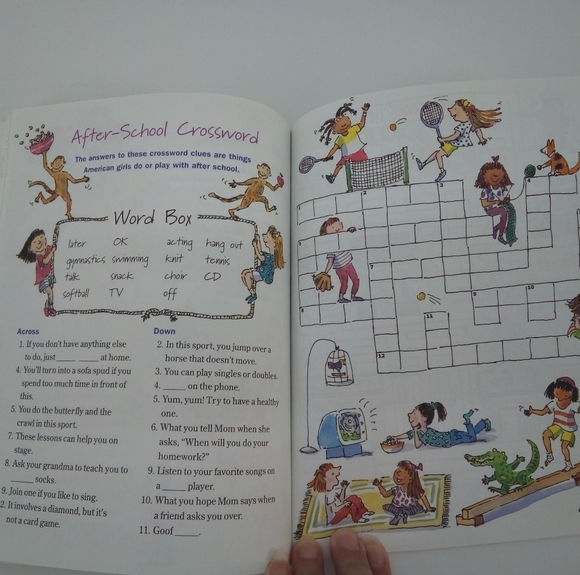 After-School Crossword
The answers to these crossword clues are things
American girls do or play with after school.
Word Box
later OK acting hang out
gymnastics swimming knit tennis
talk snack choir CD
softball TV off
Across
1. If you don't have anything else
to do, just ____ ____ at home.
4. You'll turn into a sofa spud if you
spend too much time in front of
this.
5. You do the butterfly and the
crawl in this sport.
7. These lessons can help you on
stage.
8. Ask your grandma to teach you to
____ socks.
9. Join one if you like to sing.
2. It involves a diamond, but it's
not a card game.
Down
2. In this sport, you jump over a
horse that doesn't move.
3. You can play singles or doubles.
4. ____ on the phone.
5. Yum, yum! Try to have a healthy
one.
6. What you tell Mom when she
asks, "When will you do your
homework?"
9. Listen to your favorite songs on
a ____ player.
10. What you hope Mom says when
a friend asks you over.
11. Goof ____.